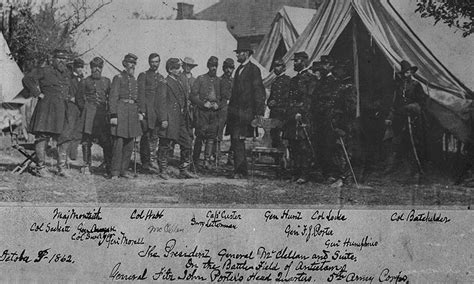 Maj Monteith Col Webb Capt Custer Gen Hunt Col Locke Col Batchelder
Col Sackett Gen Morgan McClellan Surg Letterman Gen F.J. Porter
Col Gen Morell Gen Humphries
October 3d, 1862. The President General McClellan and Suite,
On the Battle Field of Antietam,
General Fitz John Porter's Head Quarters, 5th Army Corps.